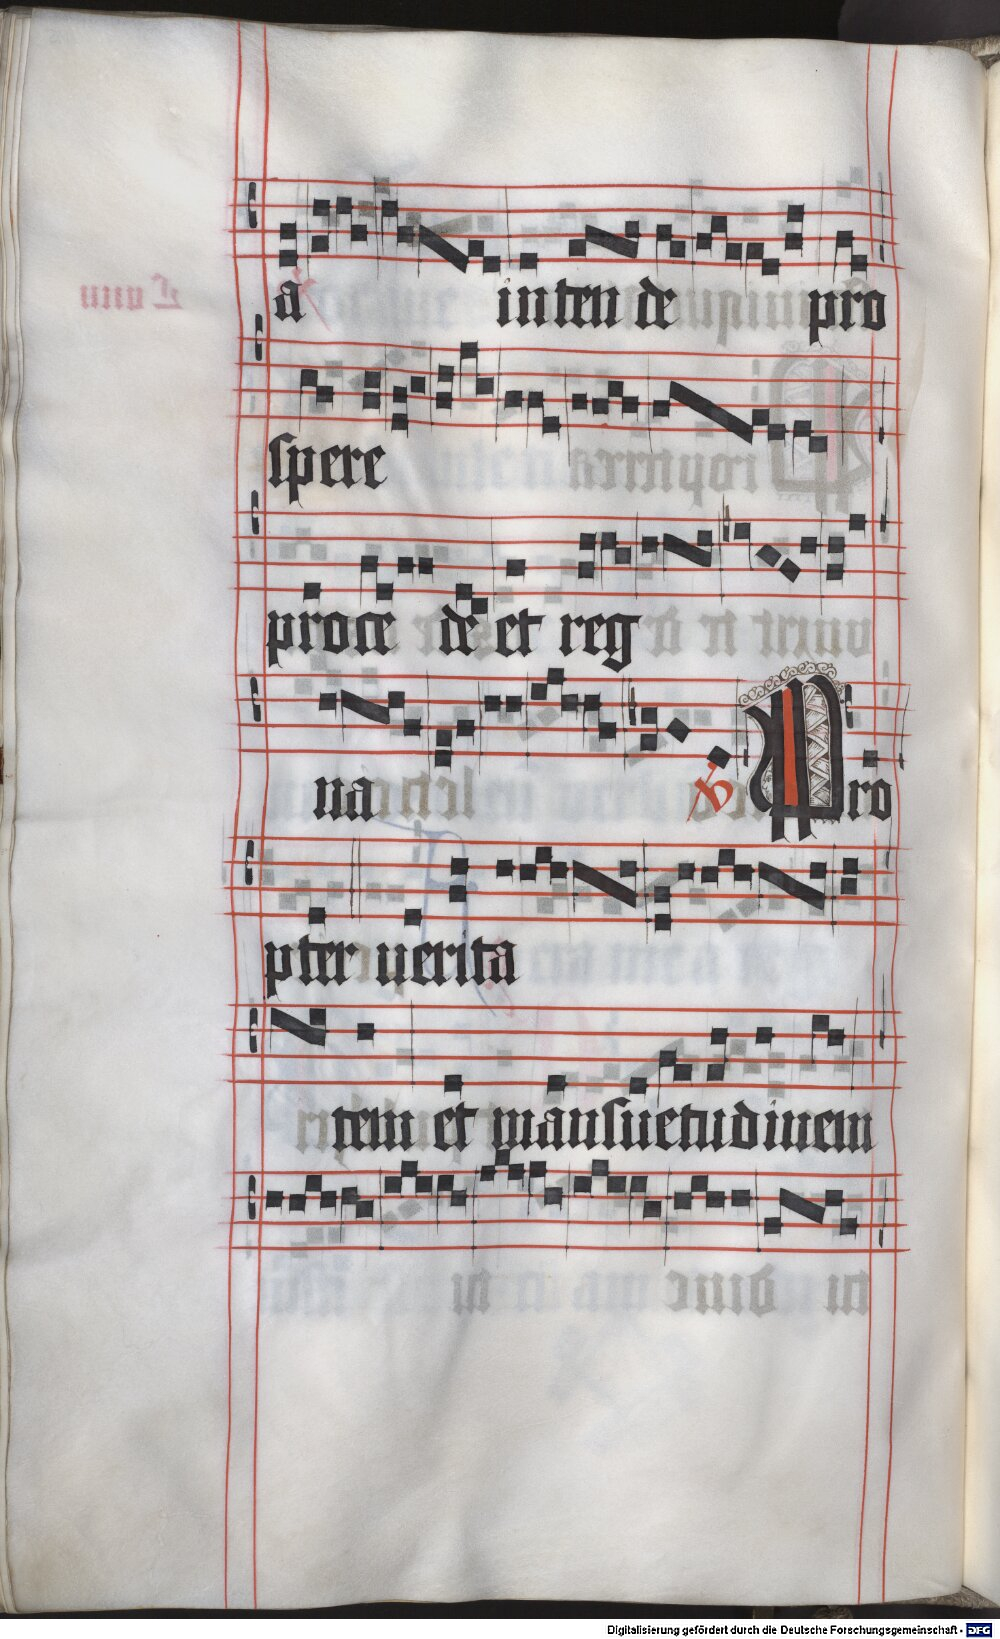 a inten de pro
spere
proce de et reg
na ℣ Pro
pter uerita
tem et mansuetudinem
Digitalisierung gefördert durch die Deutsche Forschungsgemeinschaft - DFG